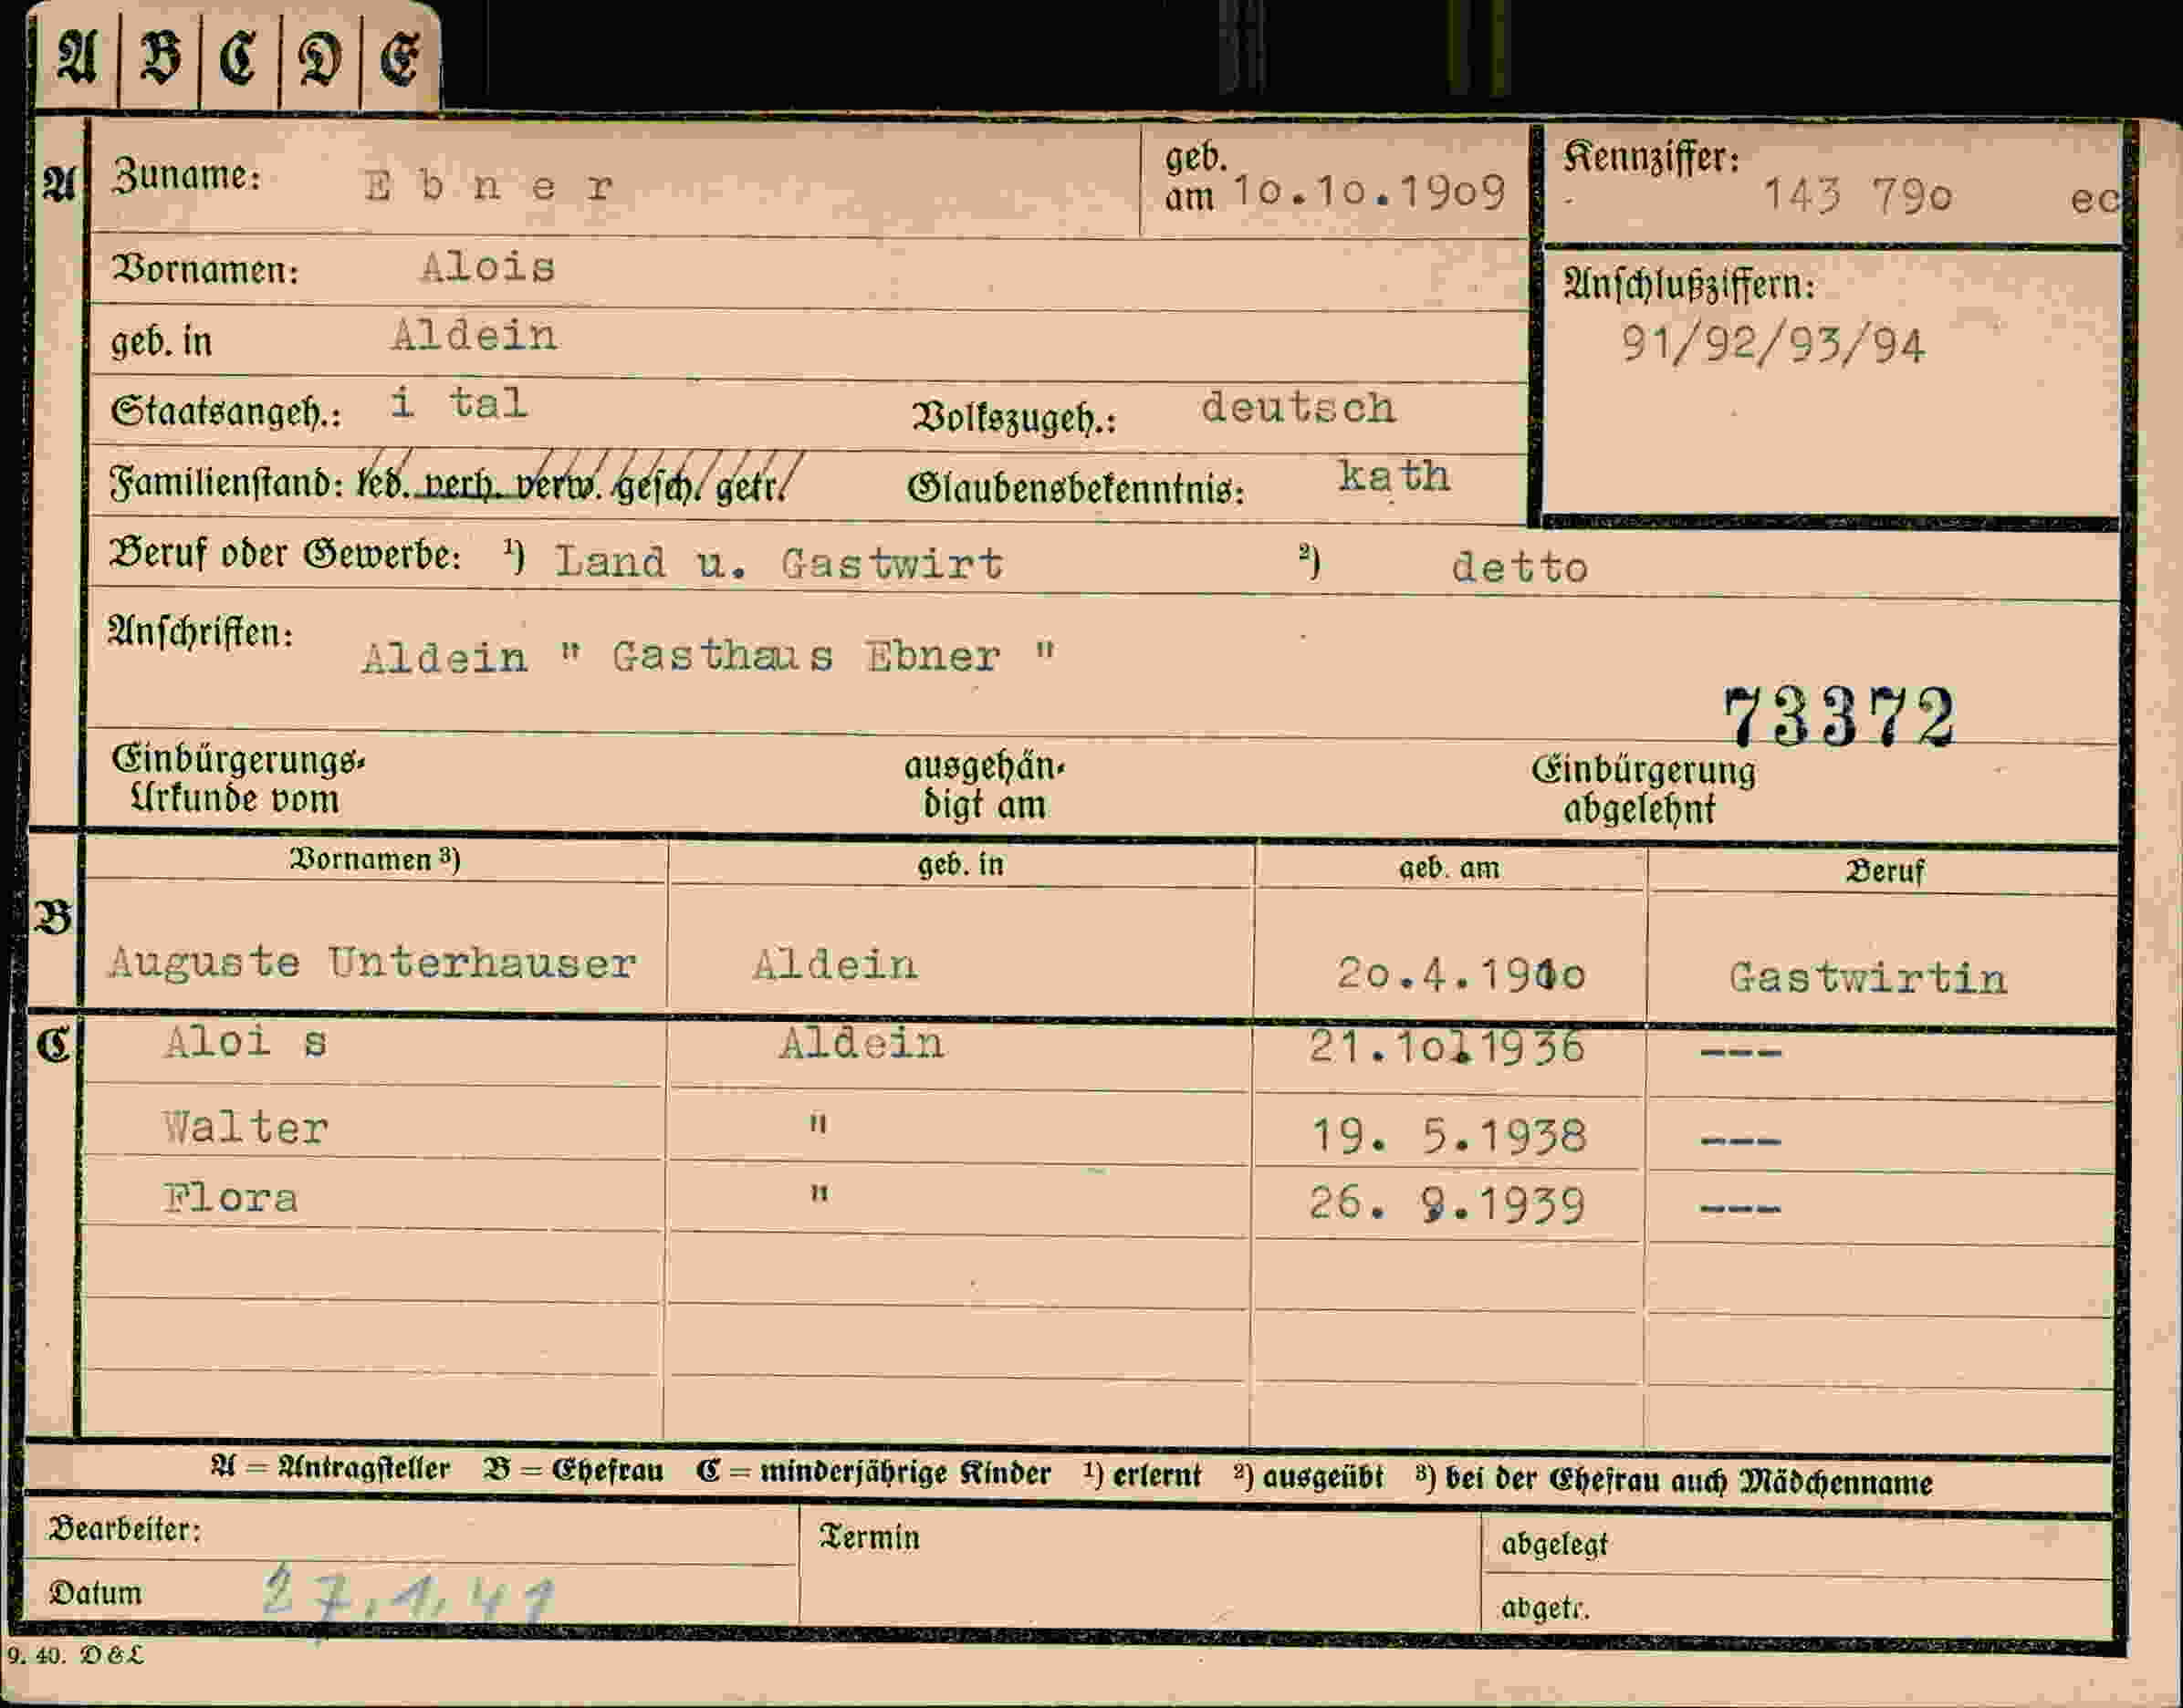 A B C D E
A Zuname: Ebner geb. am 10.10.1909 Kennziffer: 143 790 ec
Vornamen: Alois
Anschlußziffern:
geb. in Aldein 91/92/93/94
Staatsangeh.: i tal Volkszugeh.: deutsch
Familienstand: led. verh. verw. gesch. getr. Glaubensbekenntnis: kath
Beruf oder Gewerbe: ¹) Land u. Gastwirt ²) detto
Anschriften: Aldein " Gasthaus Ebner "
73372
Einbürgerungs- ausgehän- Einbürgerung
Urkunde vom digt am abgelehnt
Vornamen ³) geb. in geb. am Beruf
B
Auguste Unterhauser Aldein 20.4.1910 Gastwirtin
C Aloi s Aldein 21.10.1936 ---
Walter " 19. 5.1938 ---
Flora " 26. 9.1939 ---
A = Antragsteller B = Ehefrau C = minderjährige Kinder ¹) erlernt ²) ausgeübt ³) bei der Ehefrau auch Mädchenname
Bearbeiter: Termin abgelegt
Datum 27.1.41 abgetr.
9. 40. D & L